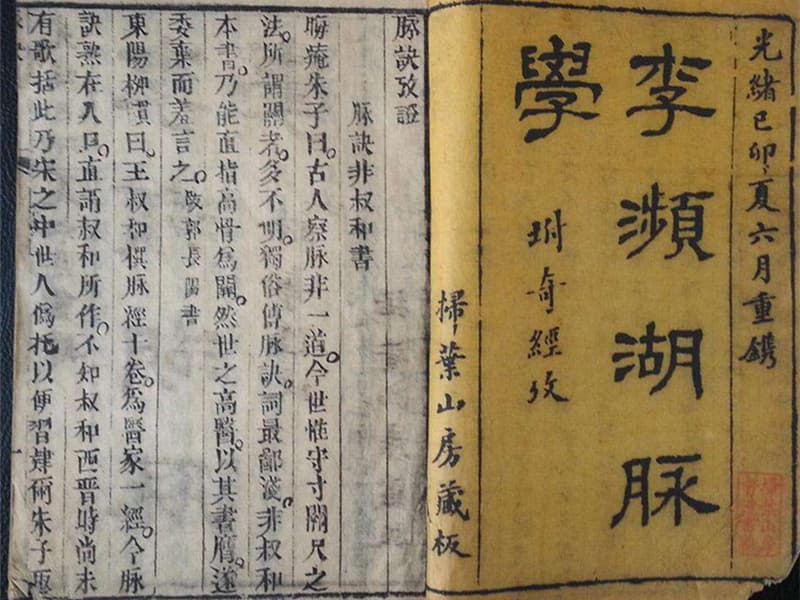 光緒己卯夏六月重鐫
李瀕湖脉
學
坿奇經攷
掃葉山房藏板
脉訣攷證
脉訣非叔和書
晦菴朱子曰。古人察脉非一道。今世惟守寸關尺之
法。所謂關者。多不明。獨俗傳脉訣。詞最鄙淺。非叔和
本書。乃能直指高骨爲關。然世之高醫。以其書贋。遂
委棄而羞言之。跋郭長陽書
東陽柳貫曰。王叔和撰脉經十卷。爲醫家一經。今脉
訣熟在人口。直謂叔和所作。不知叔和西晉時尚未
有歌括。此乃宋之中世人僞托以便習肄爾朱子取